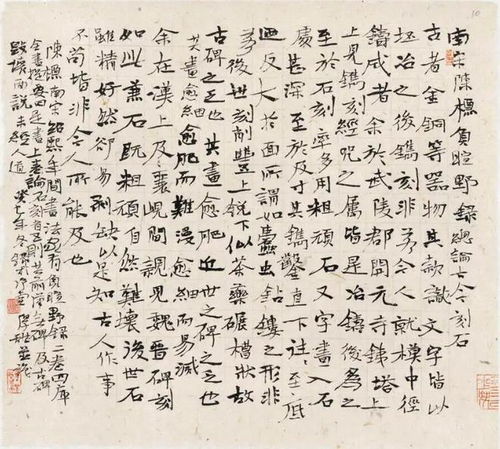 南宋陳槱負暄野錄總論古今刻石
古者金銅等器物其款識文字皆以
坯冶之後鐫刻非若今人就模中徑
鑄成者余於武陵郡開元寺鐵塔上
上見鐫刻經咒之屬皆是冶鑄後為之
至於石刻率多用粗頑石又字畫入石
處甚深至於及寸其鐫鑿直下往至底
迺反大於面所謂如蠹蟲鑽鏤之形非
若後世刻削豐上銳下似茶藥碾槽狀故
古碑之乏也其畫愈肥近世之碑之乏也
其畫愈細愈肥而難漫愈細而易滅
余在漢上及襄峴間親見魏晉碑刻
如此兼石既粗頑自然難壞後世石
雖精好然卻易剝缺以是知古人作事
不苟皆非今人所能及也
陳槱南宋紹熙年間書法家有負暄野錄二卷四庫
全書提要曰是書上卷論石刻
說未經人道